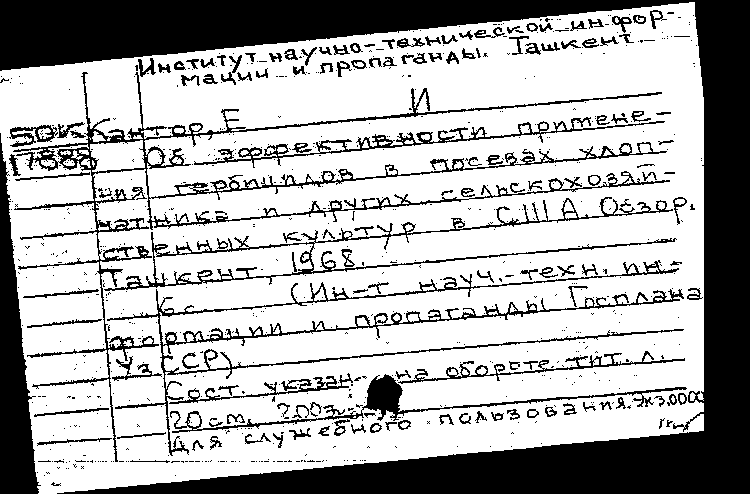 Институт научно-технической инфор-
мации и пропаганды. Ташкент.
И
ЗОК Кантор, Е
17886 Об эффективности примене-
ния гербицидов в посевах хлоп-
чатника и других сельскохозяй-
ственных культур в США. Обзор.
Ташкент, 1968.
6 с. (Ин-т науч.-техн. ин-
формации и пропаганды Госплана
УзССР).
Сост. указан на обороте тит. л.
20 см. 200э.
Для служебного пользования. Экз. 0000